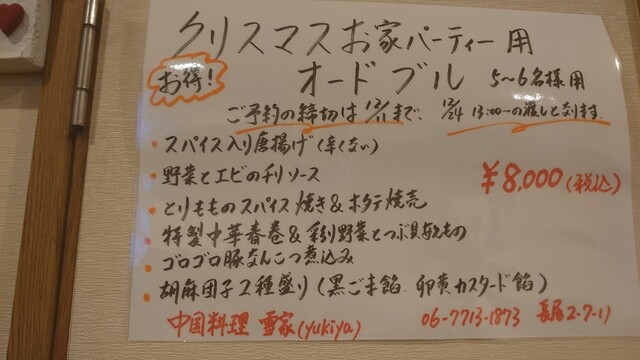 クリスマスお家パーティー用
お得!
オードブル 5~6名様用
ご予約の締切は12/11まで、12/24 13:00~の渡しとなります。
・スパイス入り唐揚げ(辛くない)
・野菜とエビのチリソース
¥8,000(税込)
・とりもものスパイス焼き&ホタテ焼売
・特製中華春巻&彩り野菜とつぶ貝
・ゴロゴロ豚なんこつ煮込み
・胡麻団子2種盛り(黒ごま餡 卵黄カスタード餡)
中国料理 雪家(yukiya)
06-7713-1873 長居2-7-17